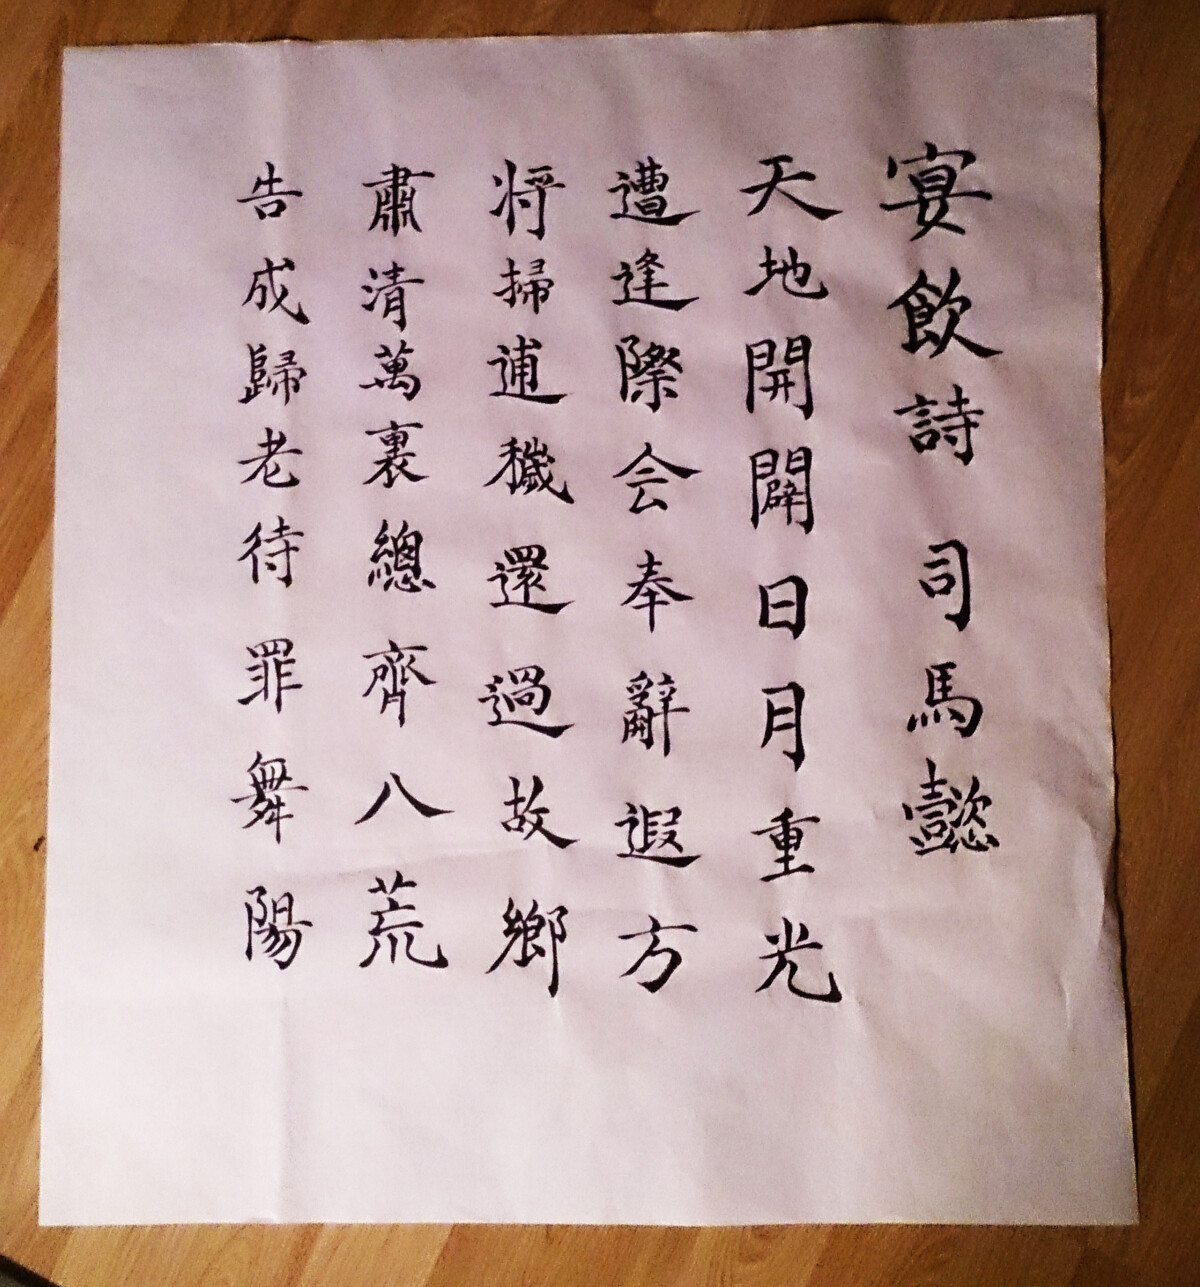 宴飲詩 司馬懿
天地開闢日月重光
遭逢際会奉辭遐方
将掃逋穢還過故鄉
肅清萬裏總齊八荒
告成歸老待罪舞陽